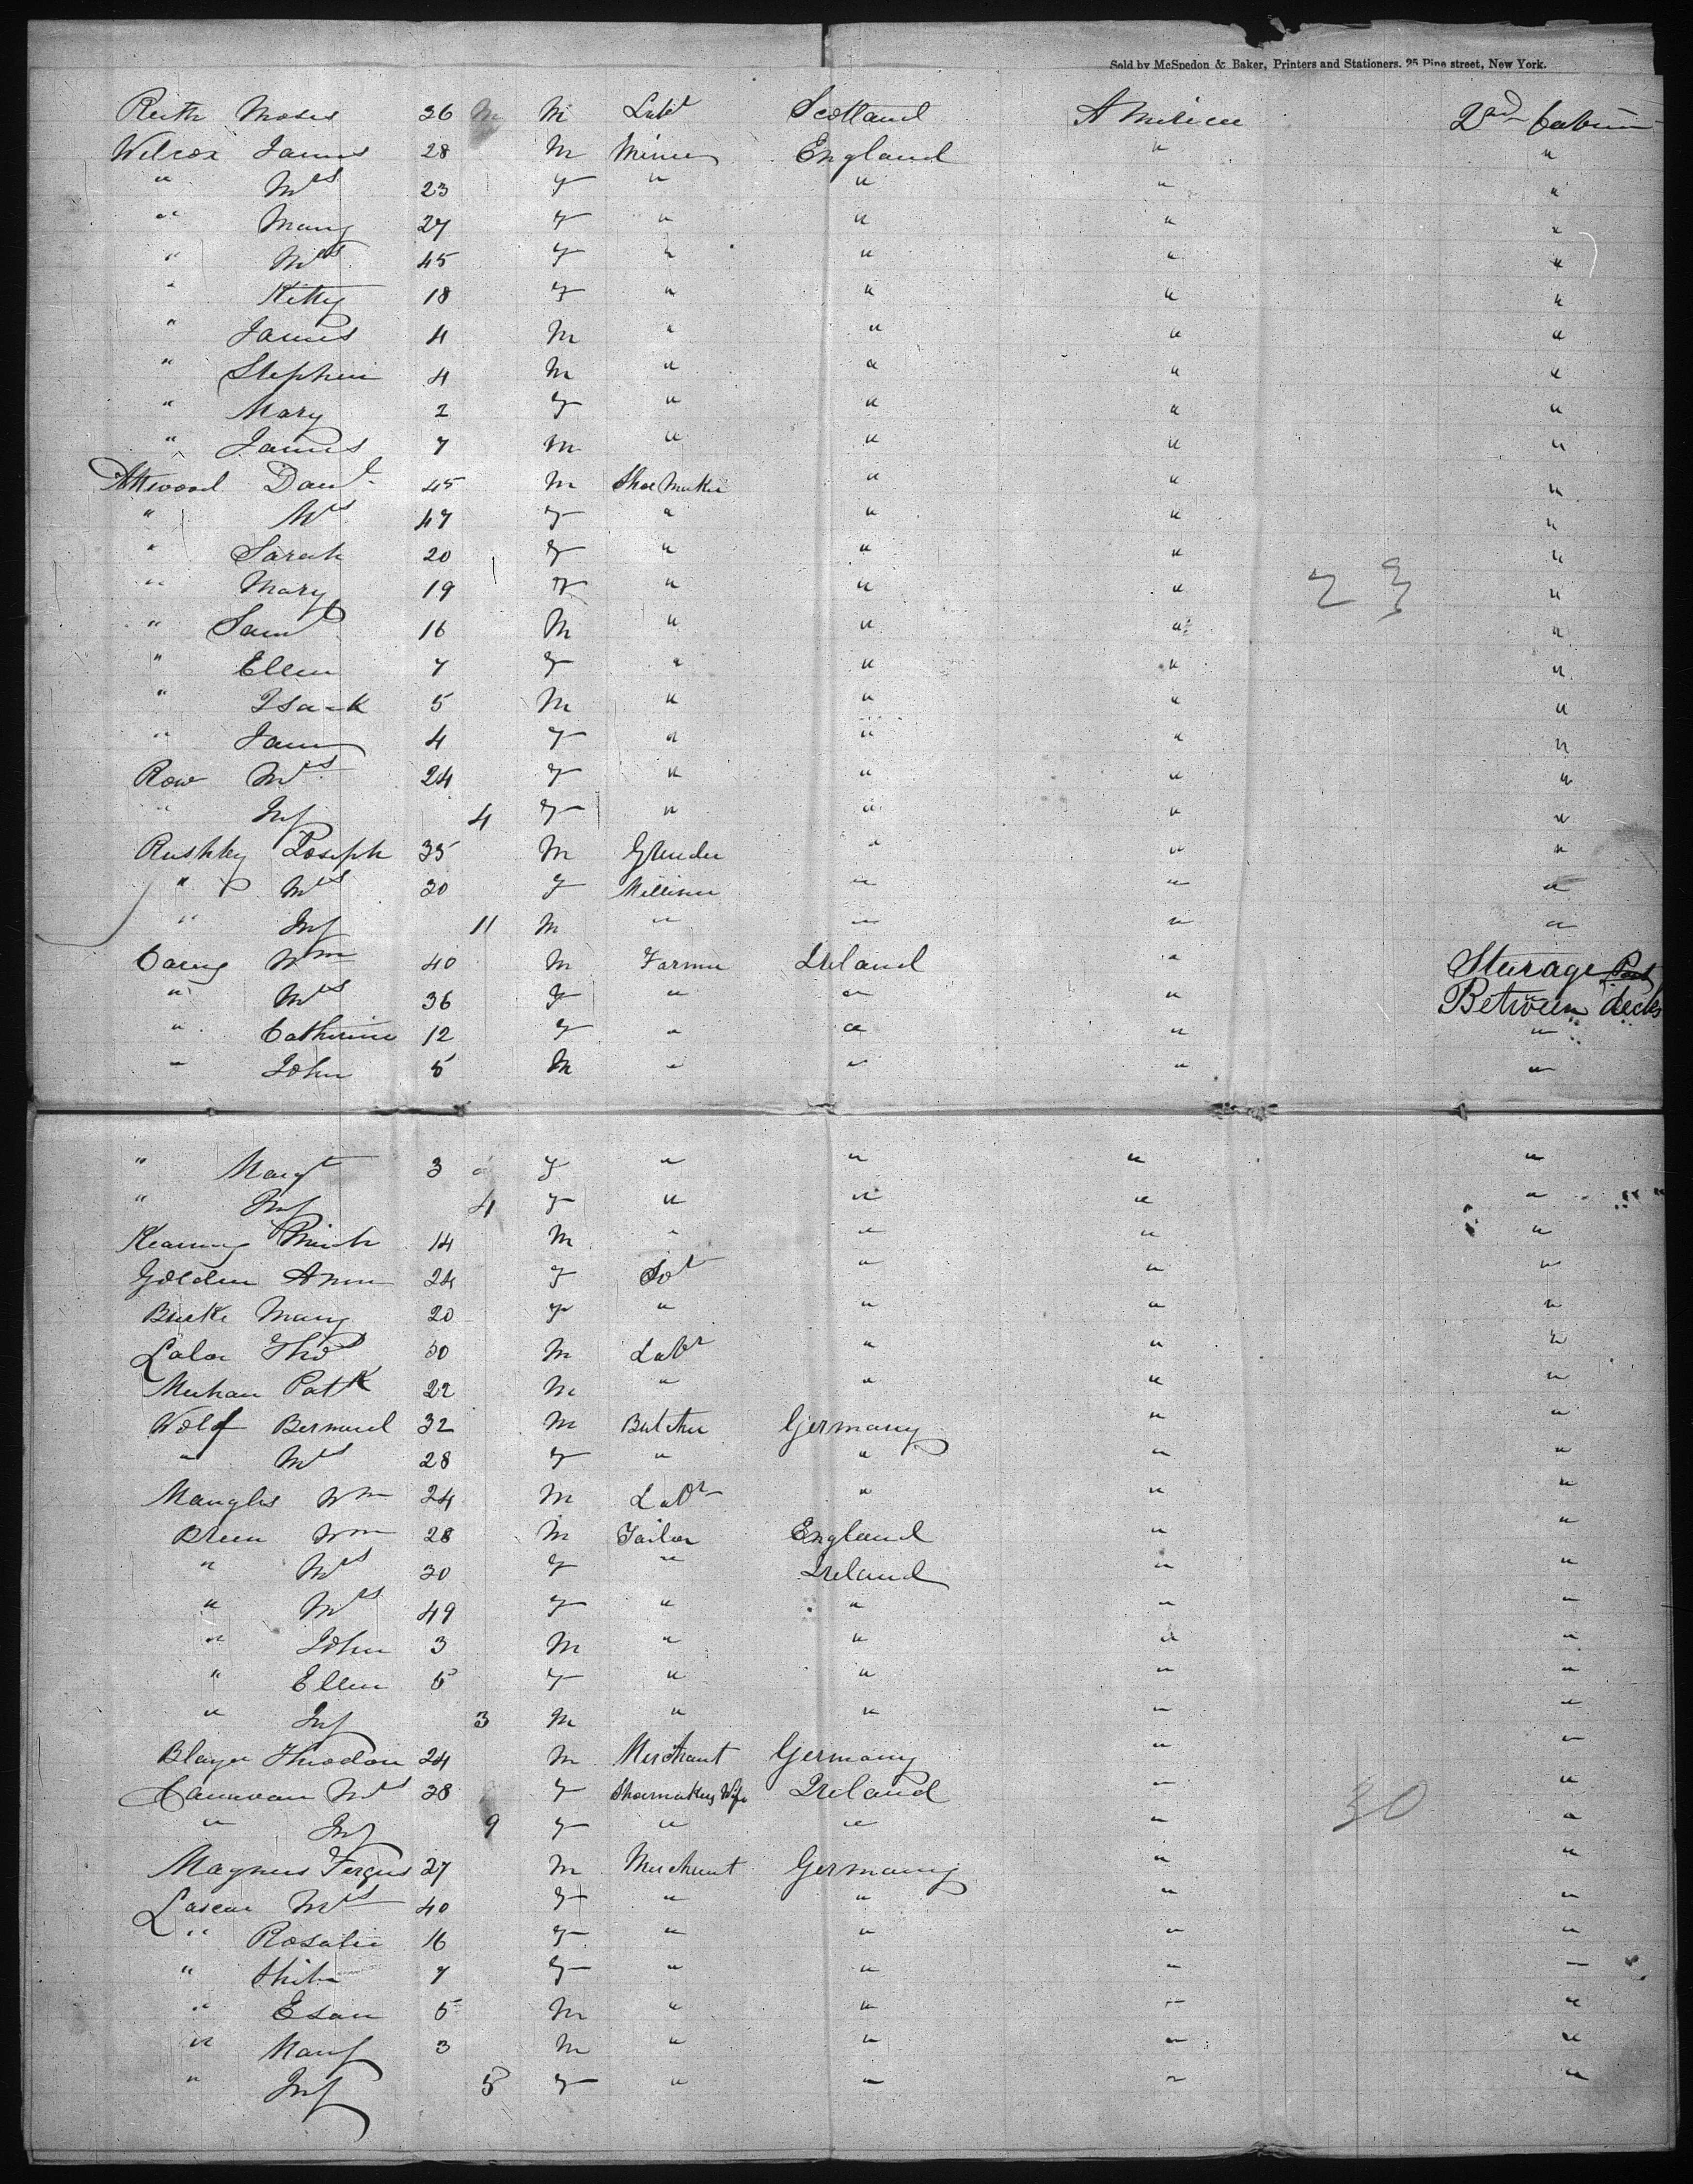 Sold by McSpedon & Baker, Printers and Stationers, 25 Pine street, New York.
Moses 36 M Scotland America 2nd Cabin
Wilcox James 28 M Miner England " "
" Mrs 23 F " " " "
" Mary 27 F " " " "
" Mrs 45 F " " " "
" Kitty 18 F " " " "
" James 4 M " " " "
" Stephen 4 M " " " "
" Mary 2 F " " " "
" James 7 M " " " "
Attwood Danl 45 M Shoe Maker " " "
" Mrs 47 F " " " "
" Sarah 20 F " " " "
" Mary 19 F " " " " 23
" Saml 16 M " " " "
" Ellen 7 F " " " "
" Isaak 5 M " " " "
" 4 F " " " "
Row Mrs 24 F " " " "
" Inf 4 F " " " "
Rushby Joseph 35 M Grinder " " "
" Mrs 30 F Milliner " " "
" Inf 11 M " " " "
Wm 40 M Farmer Ireland " Sturage
" Mrs 36 F " " " Between decks
" Catherine 12 F " " " "
" John 5 M " " " "
" Margt 3 F " " " "
" Inf 4 F " " " "
14 M " " " "
Golden Ann 24 F " " "
Burke Mary 20 F " " " "
Lalor Thos 30 M Labr " " "
Meehan Patk 22 M " " " "
Wolf Bernard 32 M Butcher Germany " "
" Mrs 28 F " " " "
Wm 24 M Labr " " "
Breen Wm 28 M Tailor England " "
" Mrs 30 F " Ireland " "
" Mrs 49 F " " " "
" John 3 M " " " "
" Ellen 5 F " " " "
" Inf 3 M " " " "
24 M Merchant Germany " "
Mrs 28 F Shoemakers Wife Ireland " 30 "
" Inf 9 F " " " "
Magnus Fergus 27 M Merchant Germany " "
Mrs 40 F " " " "
" Rosalie 16 F " " " "
" 7 F " " " "
" Esau 5 M " " " "
" 3 M " " " "
" Inf 5 F " " " "